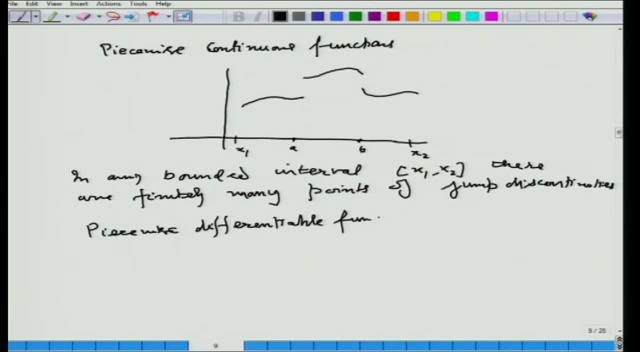 View Insert Actions Tools Help
Piecewise continuous functions
x1 a b x2
In any bounded interval [x1, x2] there
are finitely many points of jump discontinuities
Piecewise differentiable func.
9/25
9